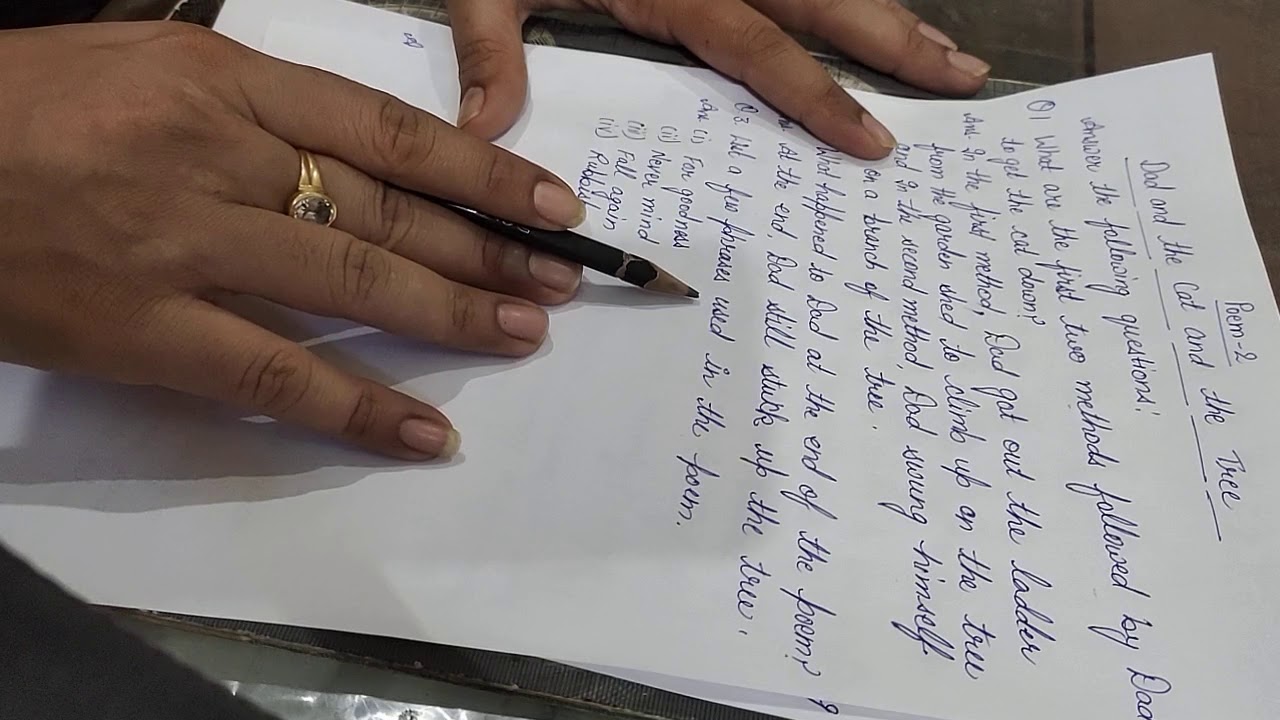 Poem-2
Dad and the Cat and the Tree
Answer the following questions:
Q1 What are the first two methods followed by Dad
to get the cat down?
Ans. In the first method, Dad got out the ladder
from the garden shed to climb up on the tree
and in the second method, Dad swung himself
on a branch of the tree.
What happened to Dad at the end of the poem?
At the end, Dad still stuck up the tree.
Q3. List a few phrases used in the poem.
Ans (i) For goodness
(ii) Never mind
(iii) Fall again
(iv) Rubbish